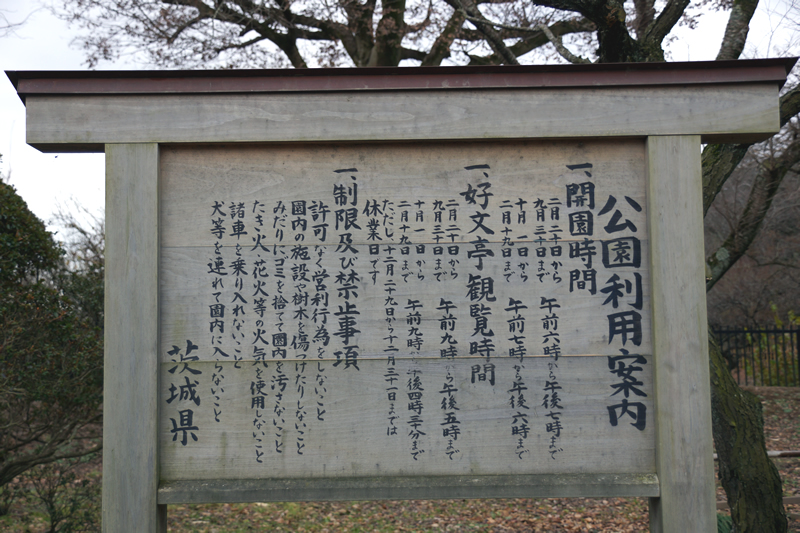 公園利用案内
一、開園時間
二月二十日から
九月三十日まで
午前六時から午後七時まで
十月一日から
二月十九日まで
午前七時から午後六時まで
一、好文亭観覧時間
二月二十日から
九月三十日まで
午前九時から午後五時まで
十月一日から
二月十九日まで
午前九時から午後四時三十分まで
ただし、十二月二十九日から十二月三十一日までは
休業日です
一、制限及び禁止事項
許可なく営利行為をしないこと
園内の施設や樹木を傷つけたりしないこと
みだりにゴミを捨てて園内を汚さないこと
たき火・花火等の火気を使用しないこと
諸車を乗り入れないこと
犬等を連れて園内に入らないこと
茨城県